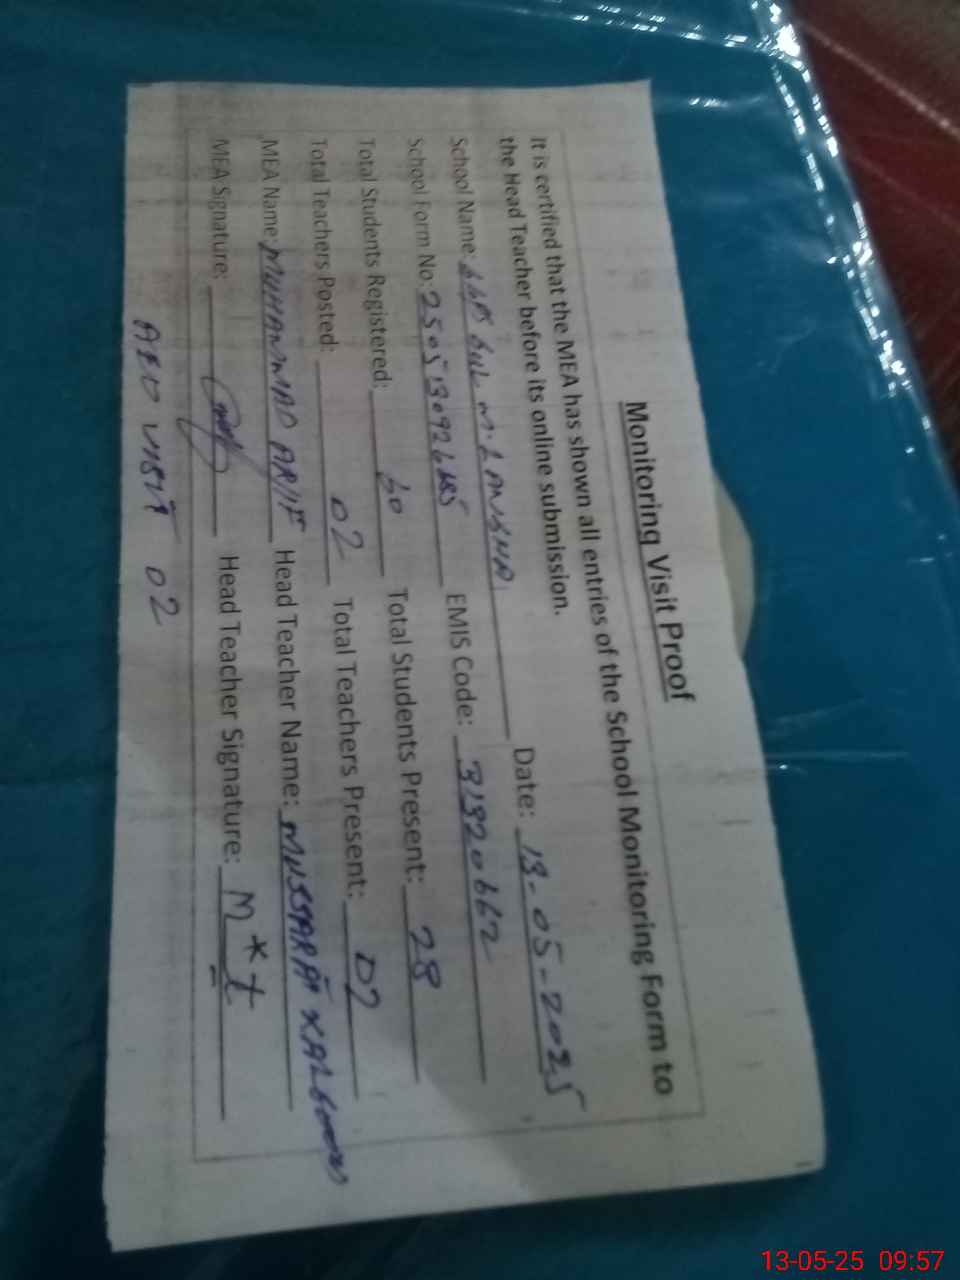 Monitoring Visit Proof
It is certified that the MEA has shown all entries of the School Monitoring Form to
the Head Teacher before its online submission.
Date: 13-05-2025
School Name: GGPS
School Form No: 2505130926485 EMIS Code: 31320662
Total Students Registered: 60 Total Students Present: 28
Total Teachers Posted: 02 Total Teachers Present: 02
MEA Name: MUHAMMAD ARIF Head Teacher Name: MUSSARAT
MEA Signature: Head Teacher Signature:
AEO VISIT 02
13-05-25 09:57